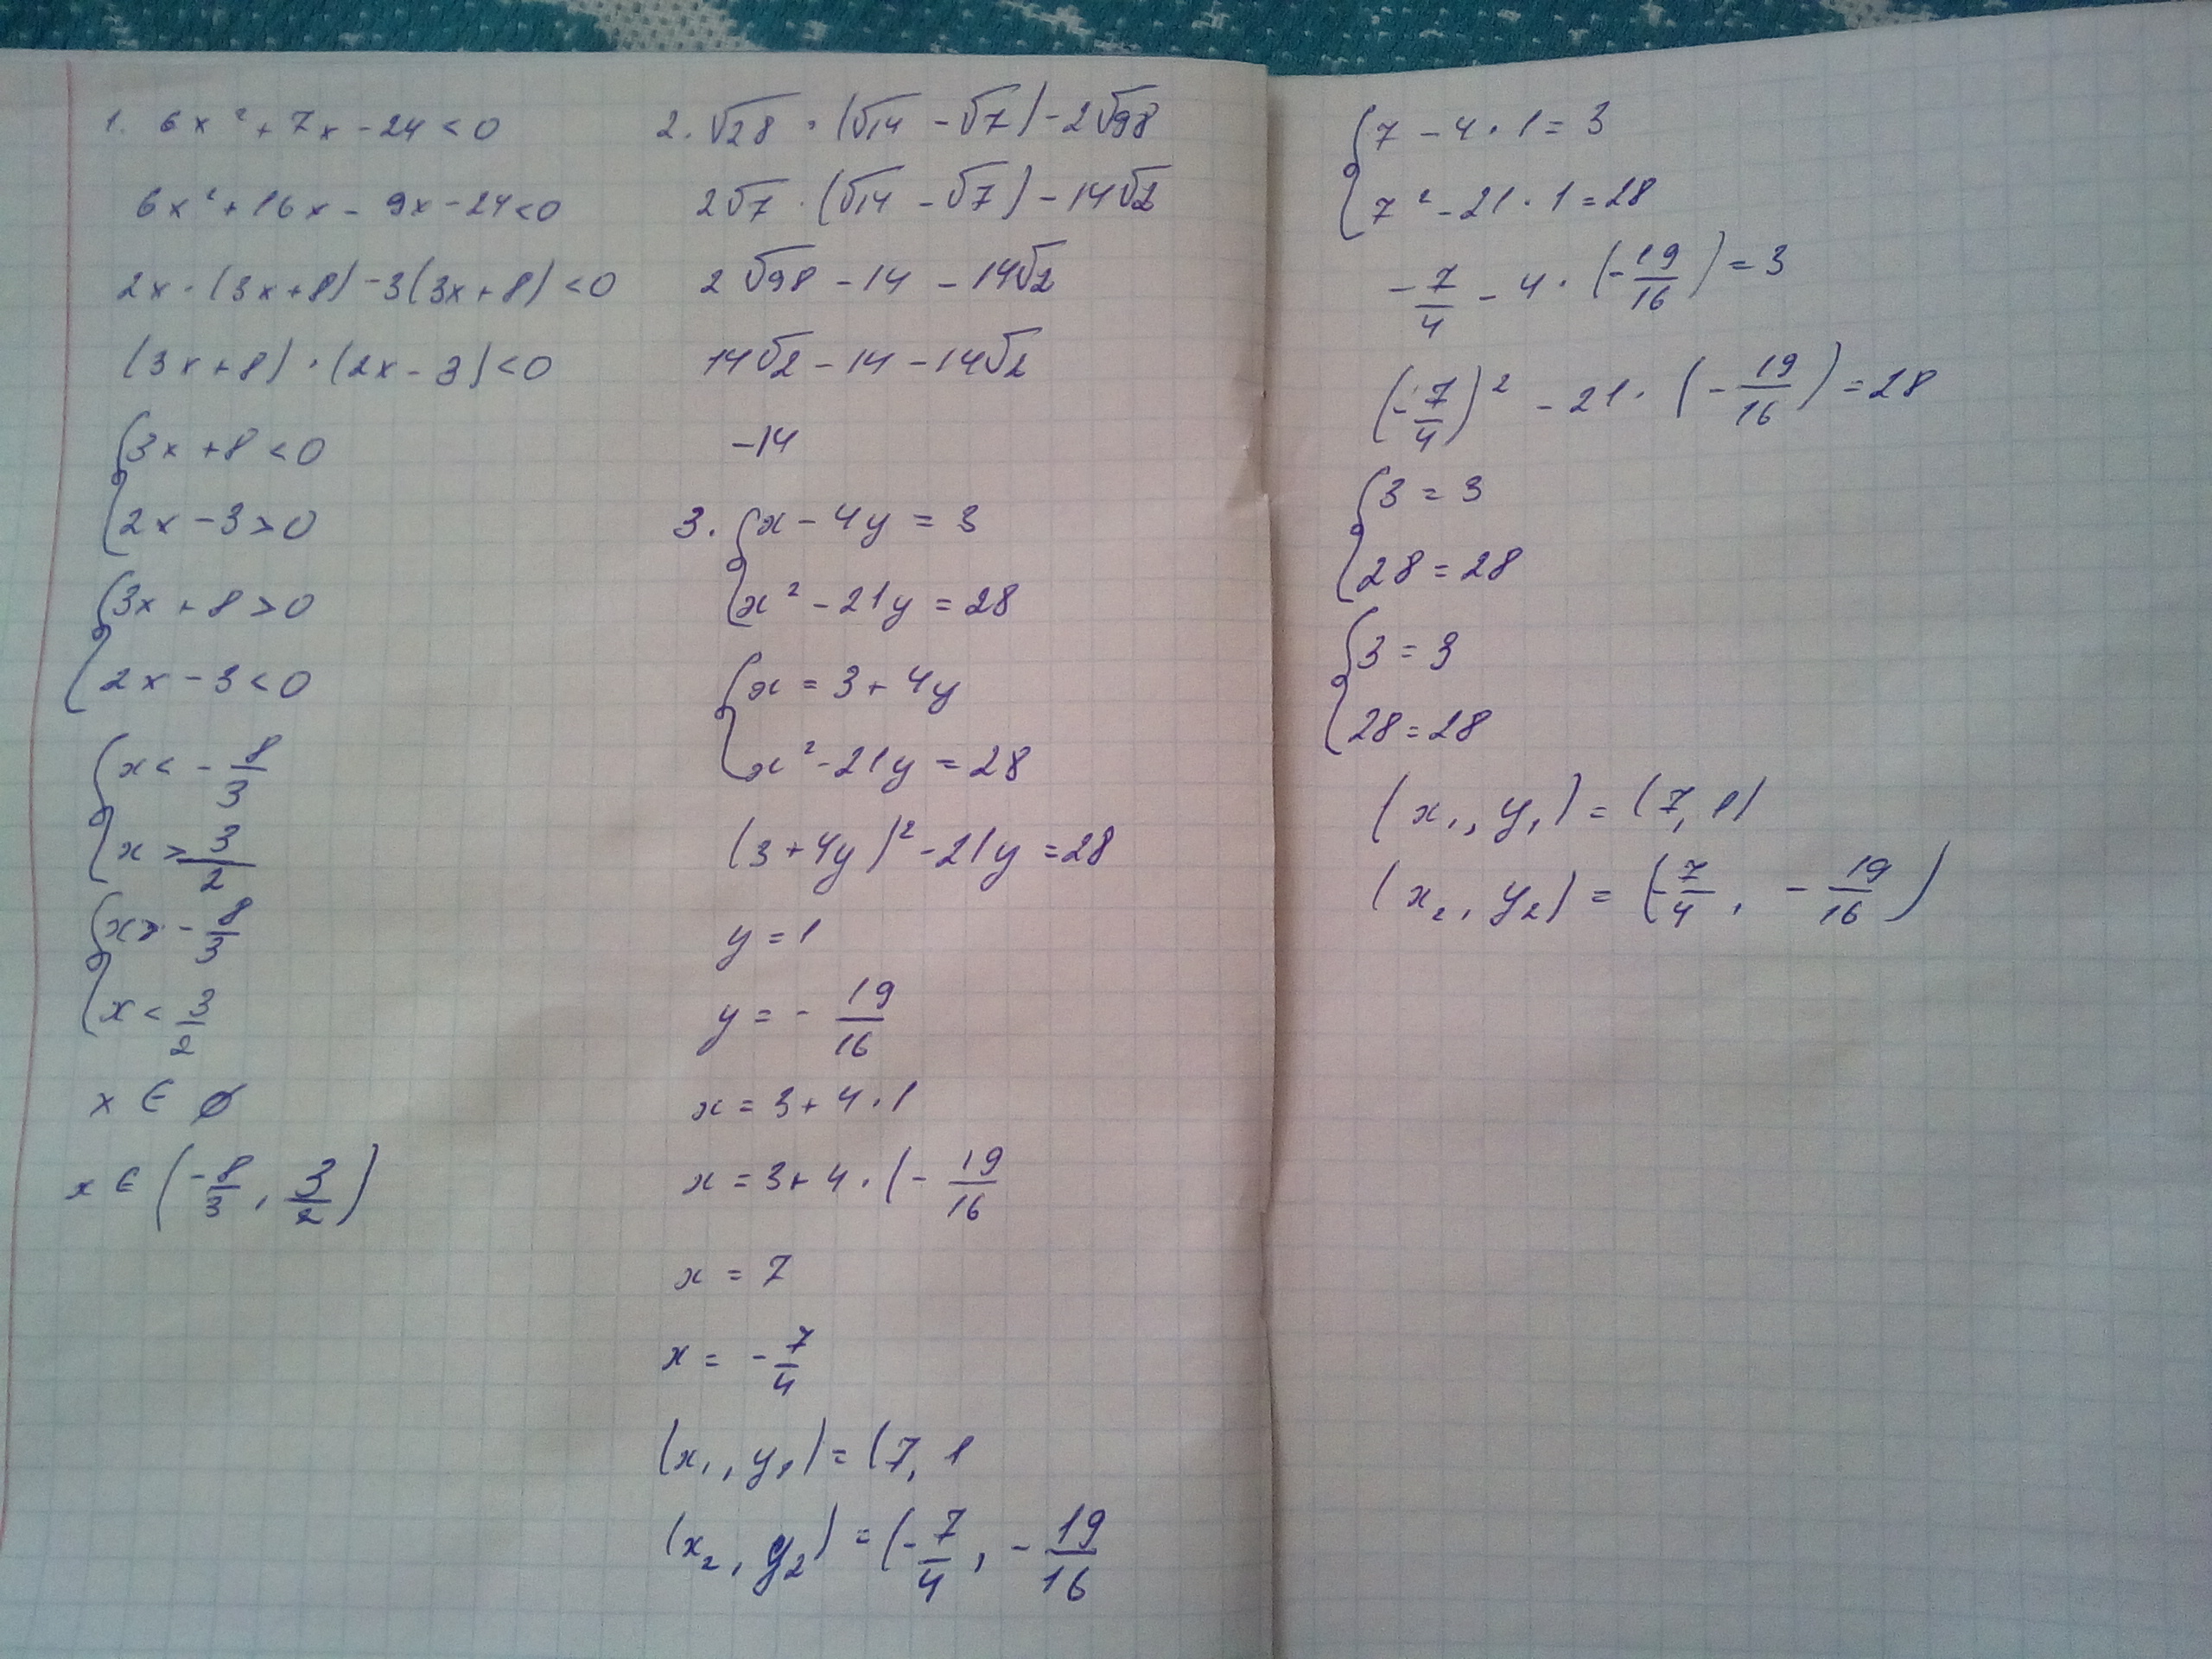 1. 6x² + 7x - 24 < 0
6x² + 16x - 9x - 24 < 0
2x · (3x + 8) - 3(3x + 8) < 0
(3x + 8) · (2x - 3) < 0
{3x + 8 < 0
{2x - 3 > 0
{3x + 8 > 0
{2x - 3 < 0
{x < - 8/3
{x > 3/2
{x > - 8/3
{x < 3/2
x ∈ ∅
x ∈ (-8/3, 3/2)
2. √28 · (√14 - √7) - 2√98
2√7 · (√14 - √7) - 14√2
2√98 - 14 - 14√2
14√2 - 14 - 14√2
-14
3. {x - 4y = 3
{x² - 21y = 28
{x = 3 + 4y
{x² - 21y = 28
(3 + 4y)² - 21y = 28
y = 1
y = - 19/16
x = 3 + 4 · 1
x = 3 + 4 · (- 19/16
x = 7
x = - 7/4
(x₁, y₁) = (7, 1
(x₂, y₂) = (- 7/4, - 19/16
{7 - 4 · 1 = 3
{7² - 21 · 1 = 28
- 7/4 - 4 · (- 19/16) = 3
(- 7/4)² - 21 · (- 19/16) = 28
{3 = 3
{28 = 28
{3 = 3
{28 = 28
(x₁, y₁) = (7, 1)
(x₂, y₂) = (- 7/4, - 19/16)